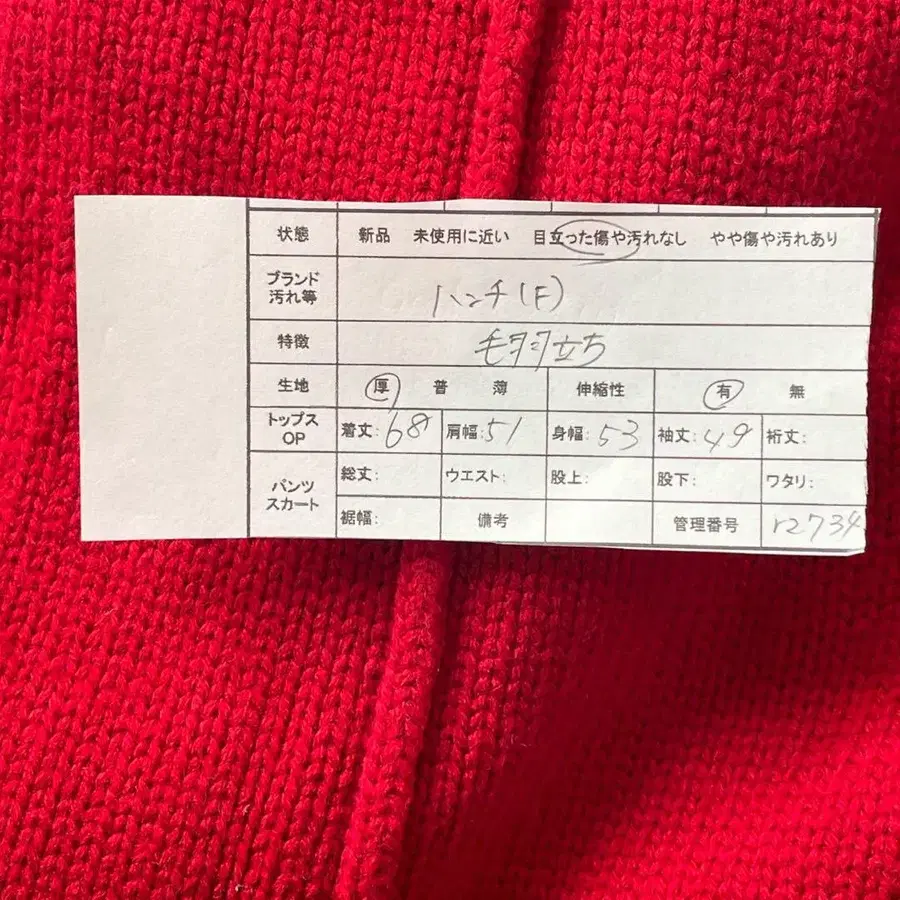 状態 新品 未使用に近い 目立った傷や汚れなし やや傷や汚れあり
ブランド
汚れ等 ハンチ(F)
特徴 毛羽立ち
生地 厚 普 薄 伸縮性 有 無
トップス
OP 着丈:68 肩幅:51 身幅:53 袖丈:49 裄丈:
パンツ
スカート 総丈: ウエスト: 股上: 股下: ワタリ:
裾幅: 備考 管理番号 r2734